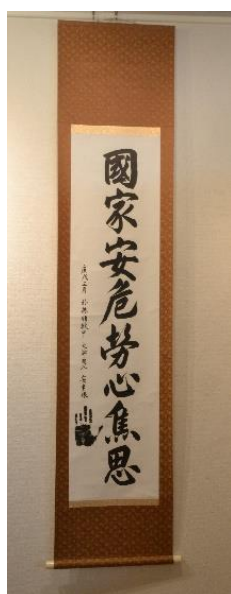 國家安危勞心焦思
庚戌三月 於旅順獄中 大韓國人 安重根